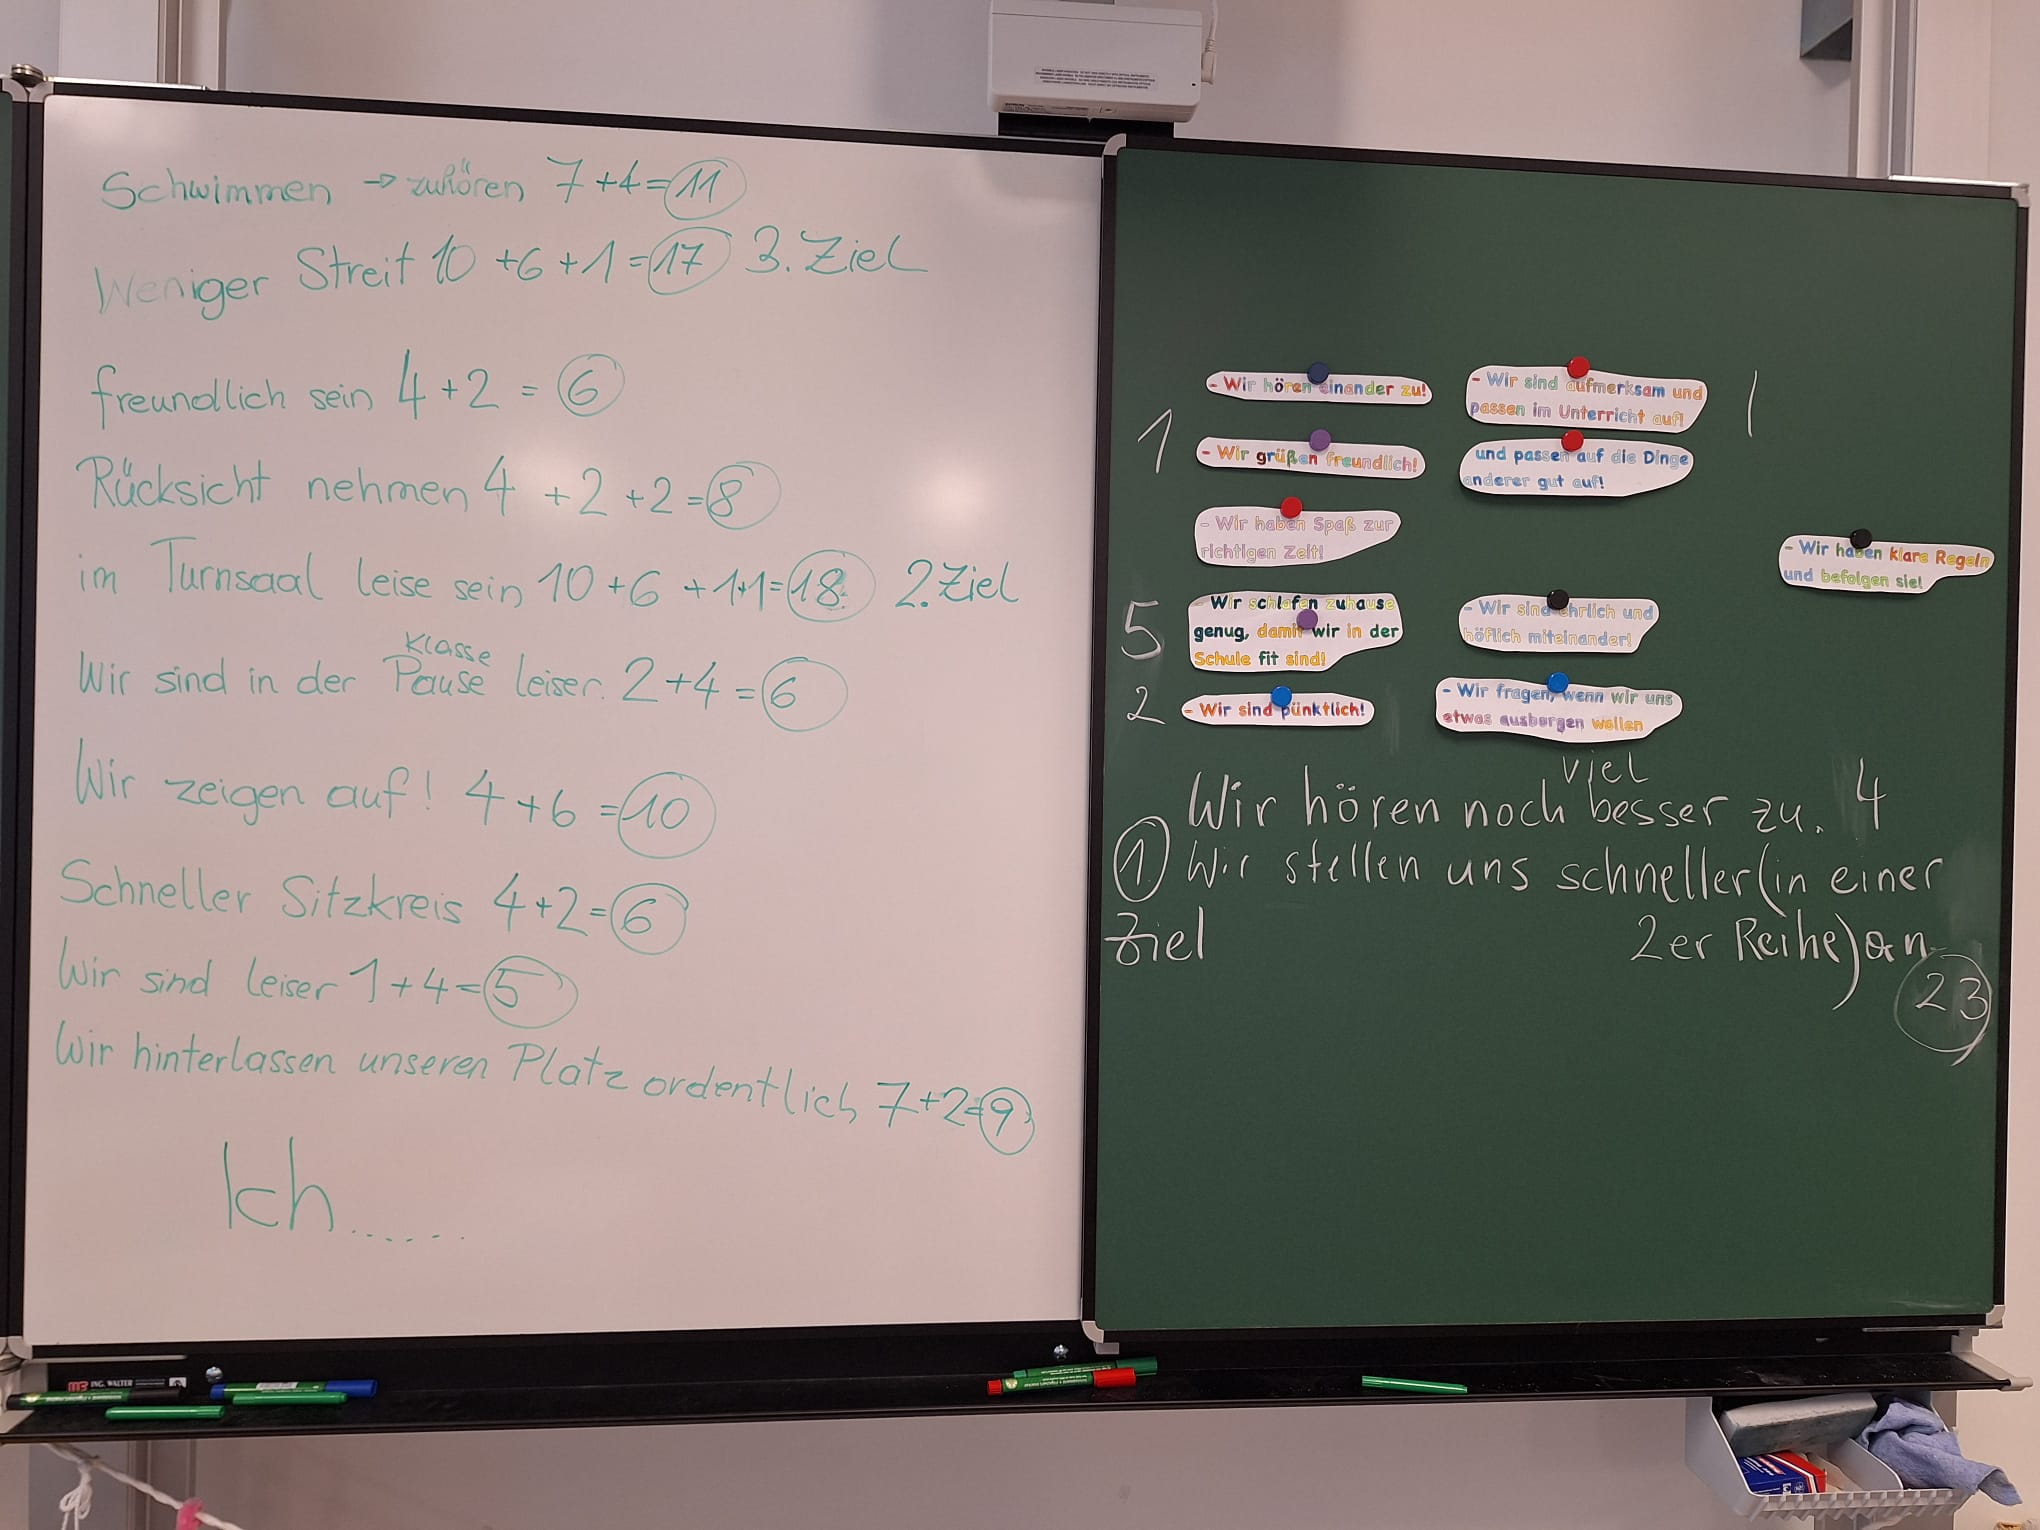 Schwimmen → zuhören 7+4=11
Weniger Streit 10 +6+1=17 3. Ziel
freundlich sein 4+2 = 6
Rücksicht nehmen 4 +2+2=8
im Turnsaal leise sein 10+6 +1+1=18 2. Ziel
Klasse
Wir sind in der Pause leiser. 2+4=6
Wir zeigen auf! 4+6=10
Schneller Sitzkreis 4+2=6
Wir sind leiser 1+4=5
Wir hinterlassen unseren Platz ordentlich 7+2=9
Ich......
- Wir hören einander zu!
1 - Wir grüßen freundlich!
- Wir haben Spaß zur
richtigen Zeit!
- Wir schlafen zuhause
5 genug, damit wir in der
Schule fit sind!
2 - Wir sind pünktlich!
- Wir sind aufmerksam und
passen im Unterricht auf! 1
und passen auf die Dinge
anderer gut auf!
- Wir sind ehrlich und
höflich miteinander!
- Wir fragen, wenn wir uns
etwas ausborgen wollen
- Wir haben klare Regeln
und befolgen sie!
viel
Wir hören noch besser zu. 4
1. Wir stellen uns schneller (in einer
Ziel 2er Reihe) an
23
ING. WALTER